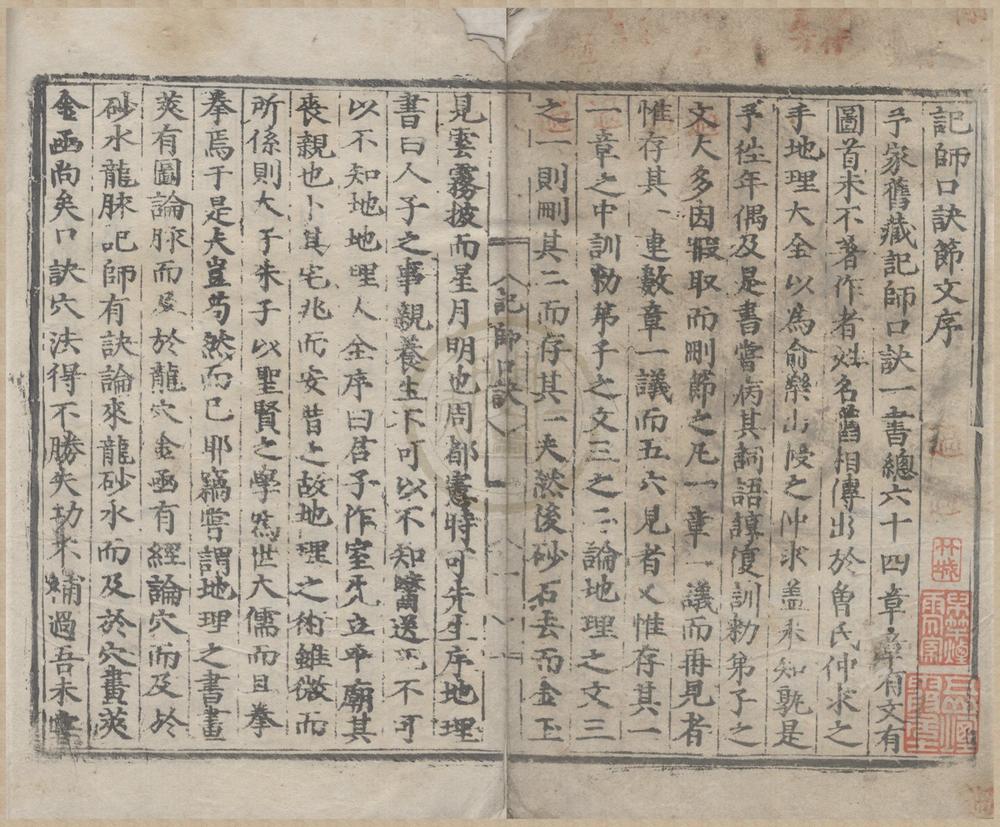 記師口訣節文序
予家舊藏記師口訣一書總六十四章章有文有
圖首末不著作者姓名舊相傳出於魯氏仲求之
手地理大全以為俞樂山授之仲求盖未知孰是
予徃年偶及是書嘗病其詞語諄復訓勑弟子之
文大多因假取而刪節之凡一章一議而再見者
惟存其一連數章一議而五六見者乂惟存其一
一章之中訓勑弟子之文三之二論地理之文三
之一則刪其二而存其一夫然後砂石去而金玉
見雲霧披而星月明也周都憲時可先生序地理
書曰人子之事親養生不可以不知醫送死不可
以不知地地理人全序曰君子作室先立乎廟其
喪親也卜其宅兆而安昔之故地理之術雖微而
所係則大子朱子以聖賢之學為世大儒而且拳
拳焉于是夫豈苟然而已耶竊嘗謂地理之書畫
莢有圖論脉而及於龍穴金凾有經論穴而及於
砂水龍脉記師有訣論來龍砂水而及於穴畫莢
金凾尚矣口訣穴法得不勝失功不補過吾未
記師口訣